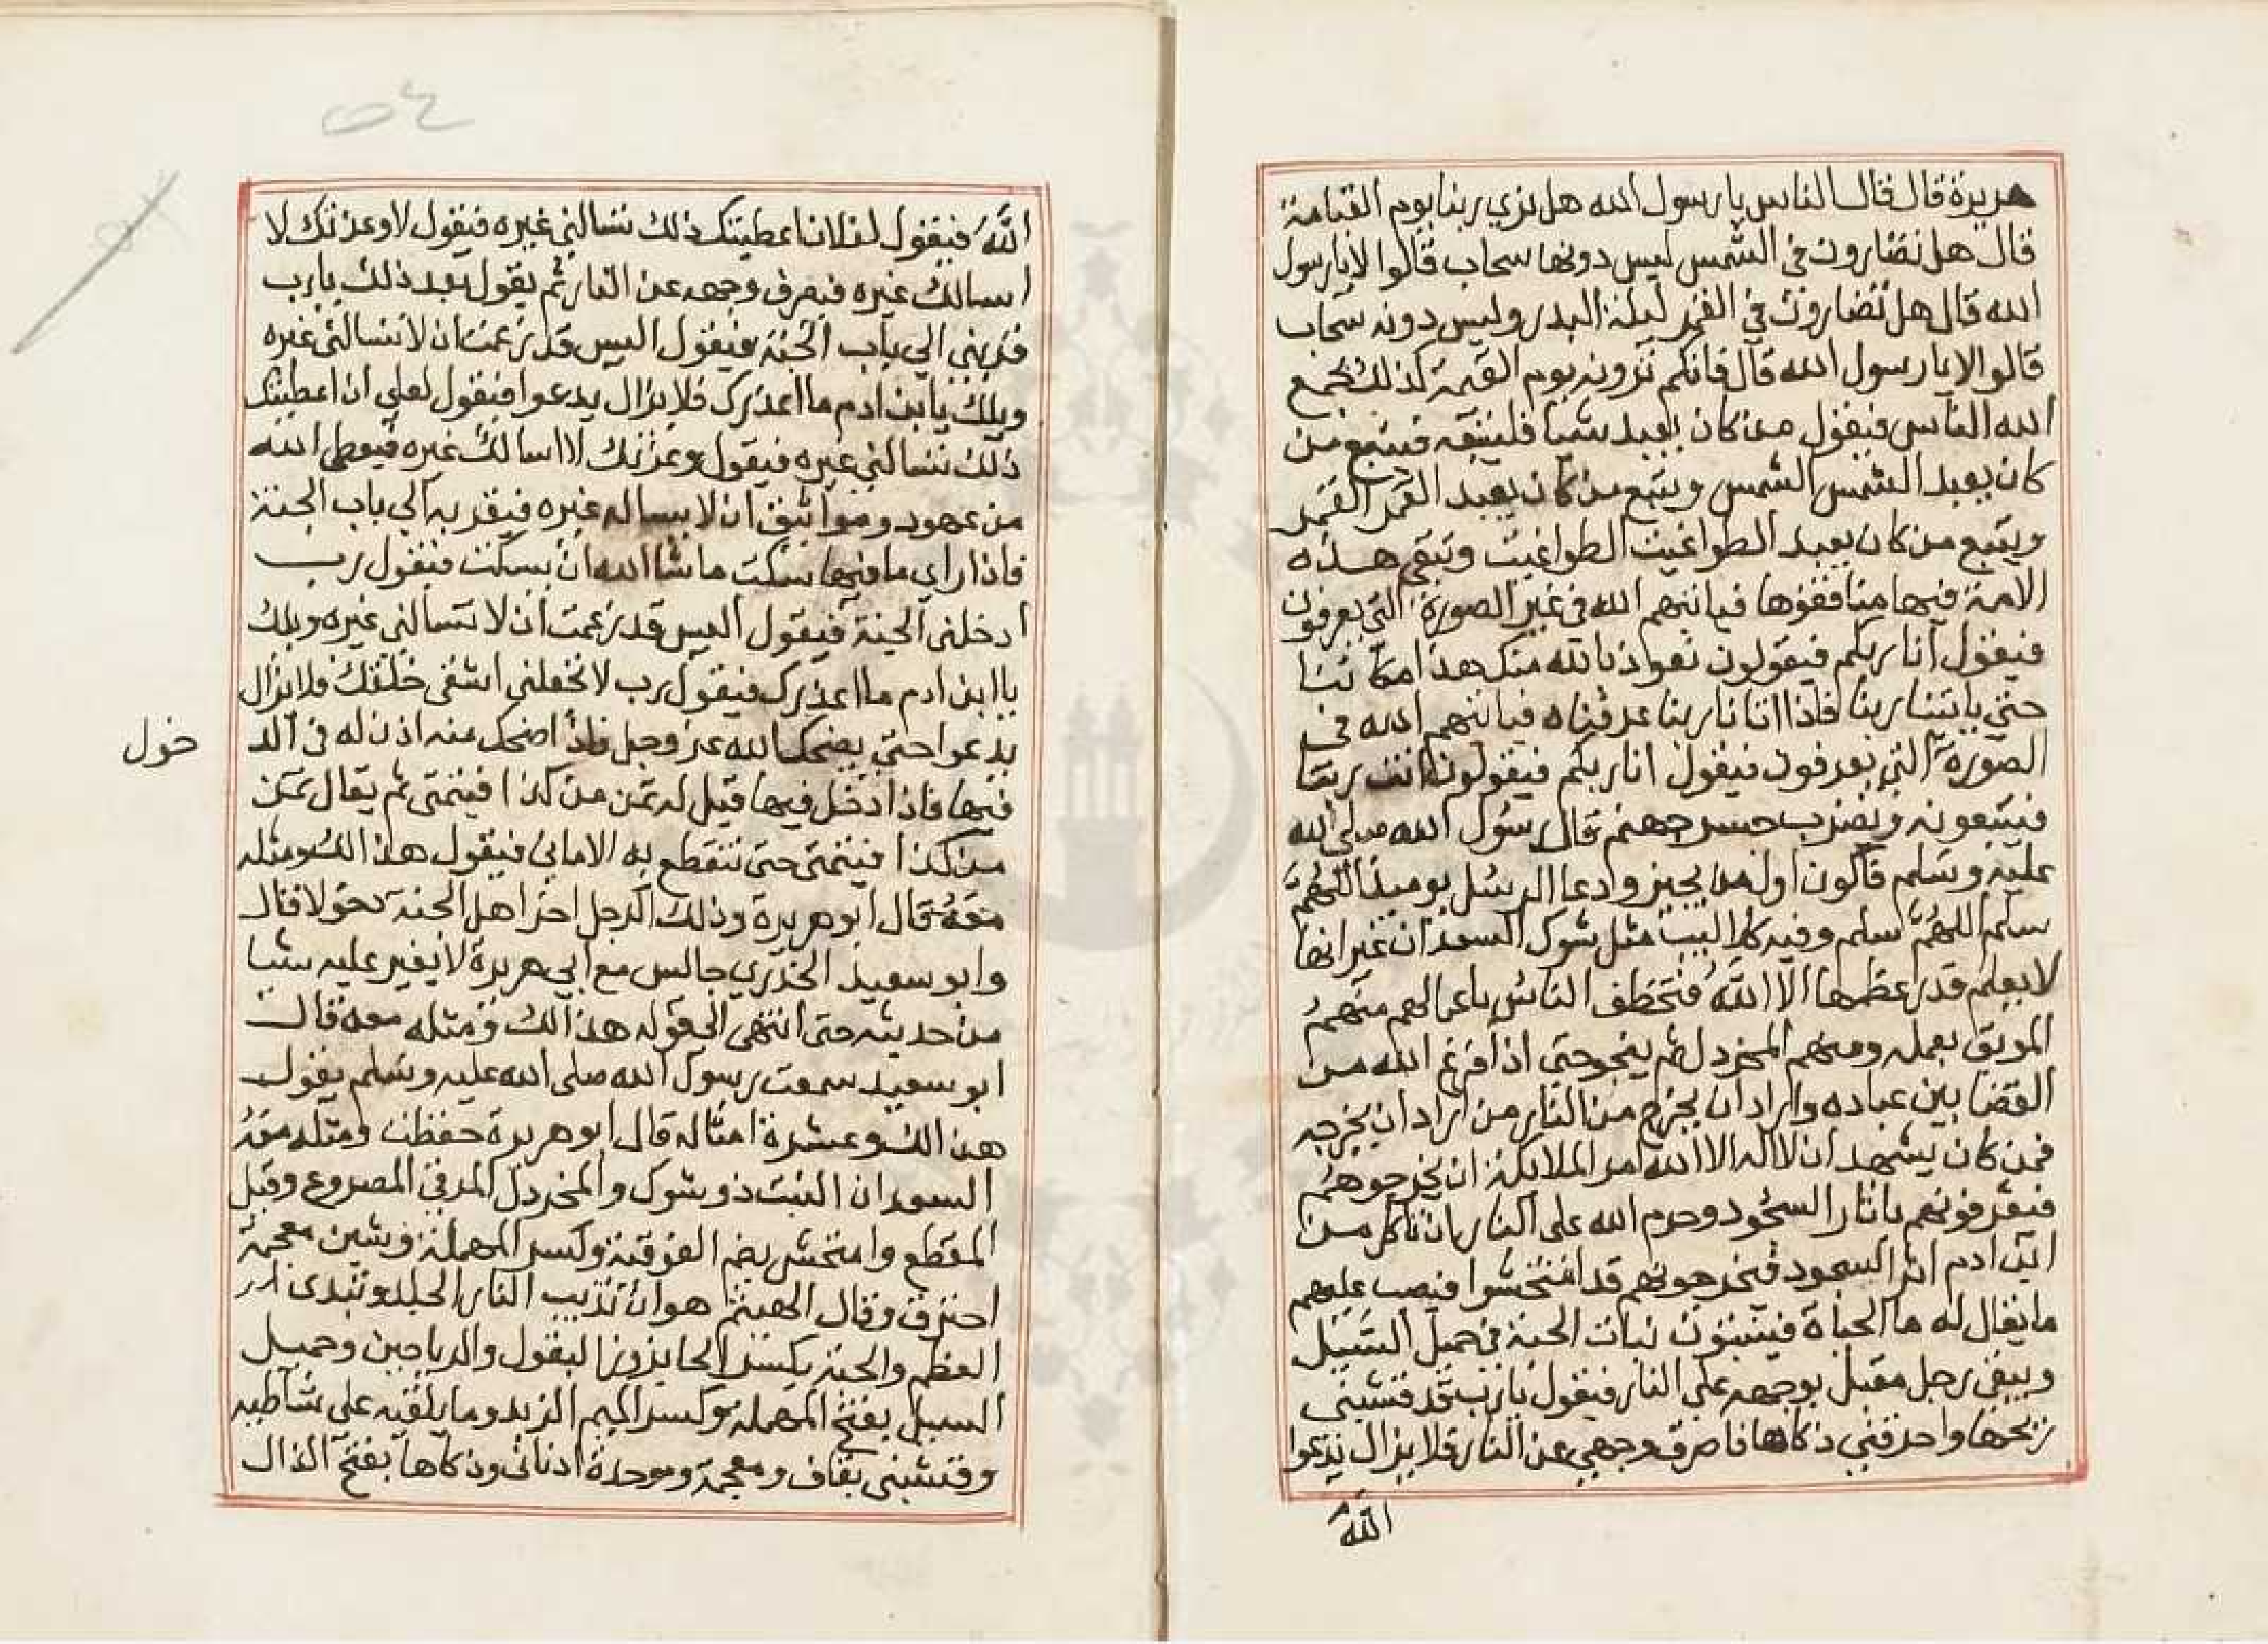 هريرة قال قال الناس يا رسول الله هل نري ربنا يوم القيامة
قال هل تضارون في الشمس ليس دونها سحاب قالوا لا يا رسول
الله قال هل تضارون في القمر ليلة البدر وليس دونه سحاب
قالوا لا يا رسول الله قال فانكم ترونه يوم القيمة كذلك يجمع
الله الناس فيقول من كان يعبد شيا فليتبعه فيتبع من
كان يعبد الشمس الشمس ويتبع من كان يعبد القمر القمر
ويتبع من كان يعبد الطواغيت الطواغيت وتبقي هذه
الامة فيها منافقوها فياتيهم الله في غير الصورة التي يعرفون
فيقول انا ربكم فيقولون نعوذ بالله منك هذا مكاننا
حتي ياتينا ربنا فاذا اتانا ربنا عرفناه فياتيهم الله في
الصورة التي يعرفون فيقول انا ربكم فيقولون انت ربنا
فيتبعونه ويضرب جسر جهنم قال رسول الله صلى الله
عليه وسلم فاكون اول من يجيز ودعا الرسل يوميذ اللهم
سلم اللهم سلم وفيه كلاليب مثل شوك السعدان غير انها
لا يعلم قدر عظمها الا الله فتخطف الناس باعمالهم منهم
الموبق بعمله ومنهم المخردل ثم ينجو حتى اذا فرغ الله من
القضا بين عباده واراد ان يخرج من النار من اراد ان يخرجه
فمن كان يشهد ان لا اله الا الله امر الملايكة ان يخرجوهم
فيعرفونهم باثار السجود وحرم الله على النار ان تاكل من
ابن ادم اثر السجود فيخرجونهم قد امتحشوا فيصب عليهم
ما يقال له ما الحياة فينبتون نبات الحبة في حميل السيل
ويبقي رجل مقبل بوجهه على النار فيقول يا رب قد قشبني
ريحها واحرقني ذكاها فاصرف وجهي عن النار فلا يزال يدعوا
الله
الله فيقول لعلك ان اعطيتك ذلك تسالني غيره فيقول لا وعزتك لا
اسالك غيره فيصرف وجهه عن النار ثم يقول بعد ذلك يا رب
قربني الي باب الجنة فيقول اليس قد زعمت ان لا تسالني غيره
ويلك يا ابن ادم ما اغدرك فلا يزال يدعوا فيقول لعلي ان اعطيتك
ذلك تسالني غيره فيقول وعزتك لا اسالك غيره فيعطي الله
من عهود ومواثيق ان لا يساله غيره فيقربه الي باب الجنة
فاذا راي ما فيها سكت ما شا الله ان يسكت فيقول رب
ادخلني الجنة فيقول اليس قد زعمت ان لا تسالني غيره ويلك
يا ابن ادم ما اغدرك فيقول رب لا تجعلني اشقى خلقك فلا يزال
يدعوا حتي يضحك الله عز وجل فاذا ضحك منه اذن له في الد
خول
فيها فاذا دخل فيها قيل له تمن من كذا فيتمنى ثم يقال تمن
من كذا فيتمنى حتى تنقطع به الاماني فيقول هذا لك ومثله
معه قال ابو هريرة وذلك الرجل اخر اهل الجنة دخولا قال
وابو سعيد الخدري جالس مع ابي هريرة لا يغير عليه شيا
من حديثه حتى انتهى الي قوله هذا لك ومثله معه قال
ابو سعيد سمعت رسول الله صلى الله عليه وسلم يقول
هذا لك وعشرة امثاله قال ابو هريرة حفظت ومثله معه
السعدان النبت ذو شوك والمخردل المرمي المصروع وقيل
المقطع وامتحش بضم الفوقية وكسر المهملة وشين معجمة
احترق وقال الهيثم هو ان تذيب النار الجلد وتبدى
العظم والحبة بكسر الحا بزور البقول والرياحين وحميل
السيل بفتح المهملة وكسر الميم الزبد وما يلقيه على شاطيه
وقشبني بقاف ومعجمة وموحدة اذاني وذكاها بفتح الذال